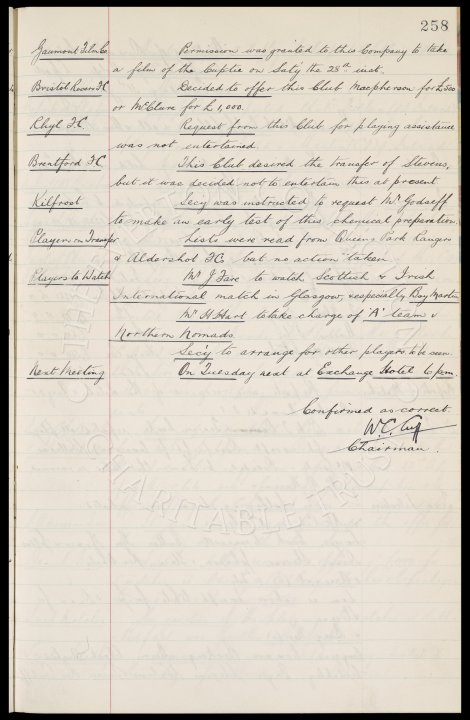 258
Gaumont Film Co Permission was granted to this Company to take
a film of the Cuptie on Sat'y the 25th inst.
Bristol Rovers F.C Decided to offer this Club Macpherson for £500
or McClure for £1,000.
Rhyl F.C Request from this Club for playing assistance
was not entertained.
Brentford F.C This Club desired the transfer of Stevens,
but it was decided not to entertain this at present.
Kilfrost Secy was instructed to request Mr
to make an early test of this chemical preparation.
Players on Transfer Lists were read from Queens Park Rangers
& Aldershot F.C. but no action taken
Players to Watch Mr J Fare to watch Scottish & Irish
International match in Glasgow, especially Boy Martin
Mr H Hart to take charge of "A" team v
Northern Nomads.
Sec'y to arrange for other players to be seen.
Next Meeting On Tuesday next at Exchange Hotel 6 pm.
Confirmed as correct
W.C. Cuff
Chairman.
CHARITABLE TRUST